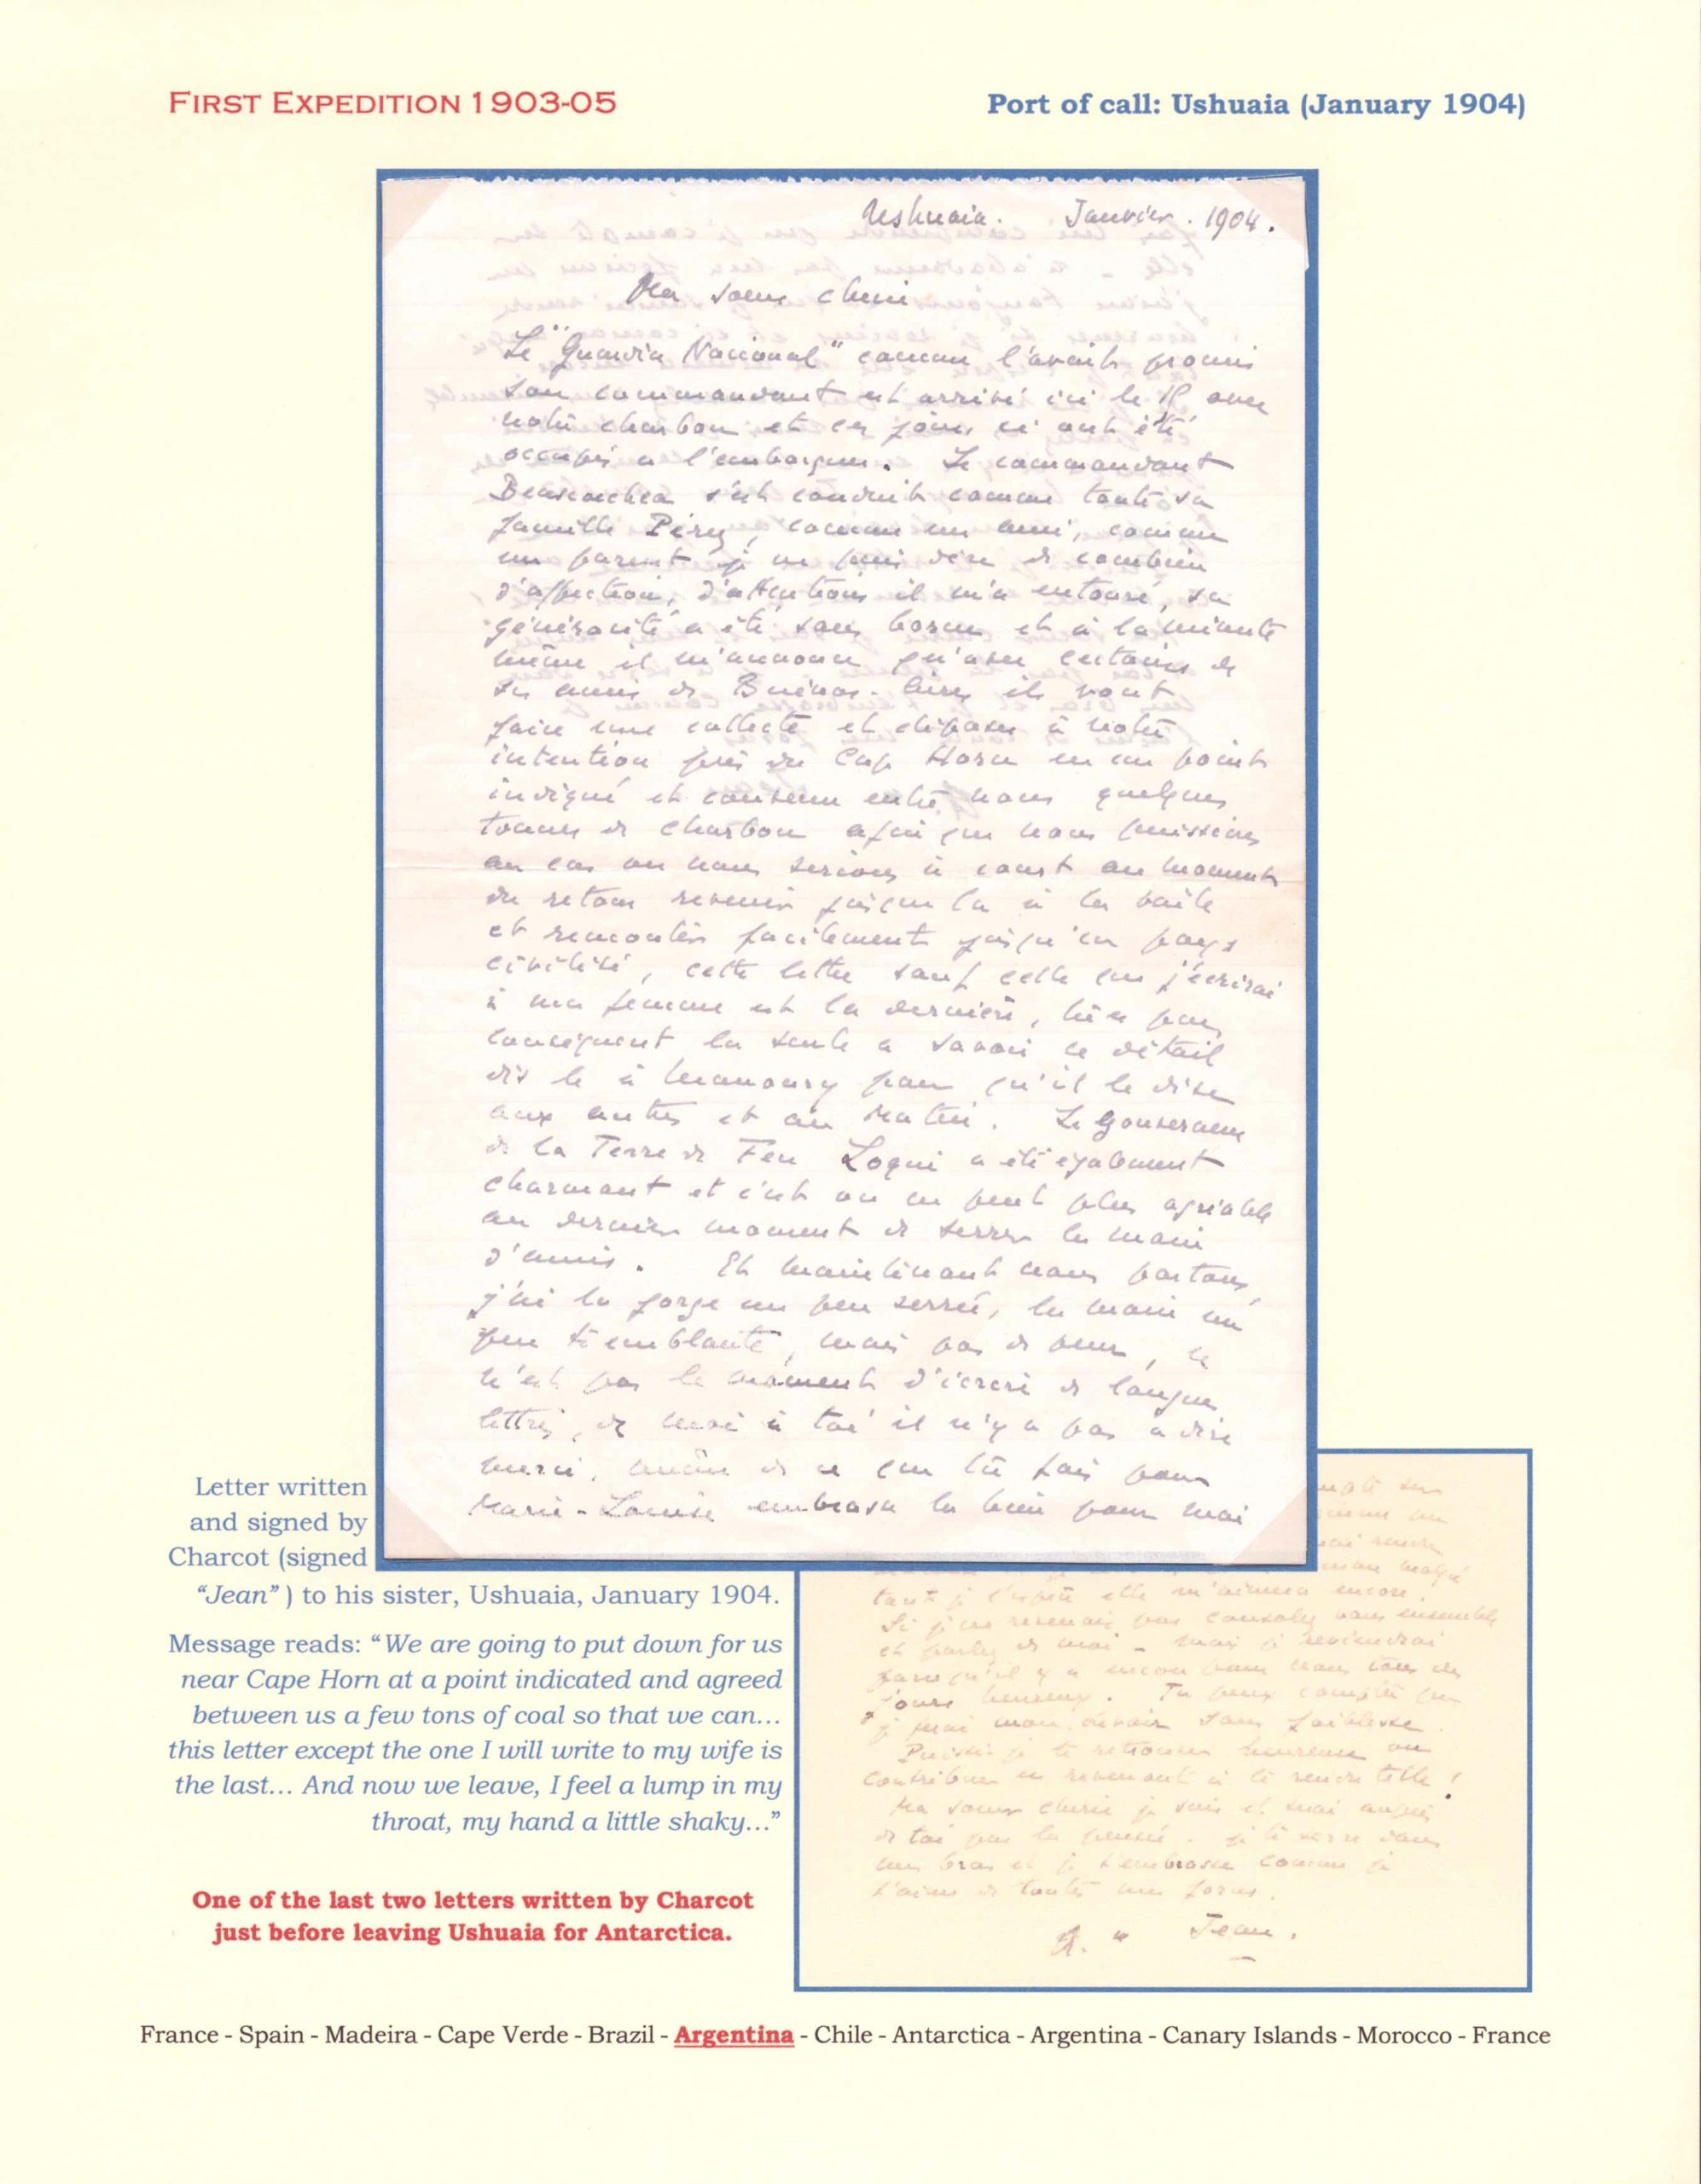 FIRST EXPEDITION 1903-05
Port of call: Ushuaia (January 1904)
Ushuaia. Janvier. 1904.
Ma soeur chérie
Le "Guardia Nacional" comme l'avait promis
son commandant est arrivé ici le avec
notre charbon et ces jours ci ont été
occupés a l'embarquer. Le commandant
s'est conduit comme toute sa
famille Pérez, comme un ami, comme
un parent je ne puis dire de combien
d'affection, d'attentions il m'a entouré, sa
générosité a été sans borne et à la minute
même il m'annonce qu'avec certains de
ses amis de Buénos-Aires ils vont
faire une collecte et déposer à notre
intention près du Cap Horn en un point
indiqué et convenu entre nous quelques
tonnes de charbon afin que nous puissions
au cas ou nous serions à court au moment
du retour revenir jusque la à la voile
et remonter facilement jusqu'en pays
civilisé, cette lettre sauf celle que j'écrirai
à ma femme est la dernière, tu es par
conséquent la seule a savoir ce détail
dis le à Manoury pour qu'il le dise
aux autres et au Matin. Le Gouverneur
de la Terre de Feu Loqui a été également
charmant et c'est on ne peut plus agréable
au dernier moment de serrer la main
d'amis. Et maintenant nous partons,
j'ai la gorge un peu serrée, la main un
peu tremblante, mais pas de peur, ce
n'est pas le moment d'écrire de longues
lettres, de moi à toi il n'y a pas a dire
merci, même de ce que tu fais pour
Marie-Louise embrasse la bien pour moi
tant je l'espère elle m'aimera encore.
Si je ne revenais pas consolez vous ensemble
et parlez de moi - mais je reviendrai
parcequ'il y a encore pour nous tous des
jours heureux. Tu peux compter que
je ferai mon devoir sans faiblesse.
Puissé-je te retrouver heureuse ou
contribuer en revenant à te rendre telle!
Ma soeur chérie je suis et serai auprès
de toi par la pensée. je te serre dans
mes bras et je t'embrasse comme je
t'aime de toutes mes forces.
Jean.
Letter written
and signed by
Charcot (signed
"Jean") to his sister, Ushuaia, January 1904.
Message reads: "We are going to put down for us
near Cape Horn at a point indicated and agreed
between us a few tons of coal so that we can...
this letter except the one I will write to my wife is
the last... And now we leave, I feel a lump in my
throat, my hand a little shaky..."
One of the last two letters written by Charcot
just before leaving Ushuaia for Antarctica.
France - Spain - Madeira - Cape Verde - Brazil - Argentina - Chile - Antarctica - Argentina - Canary Islands - Morocco - France